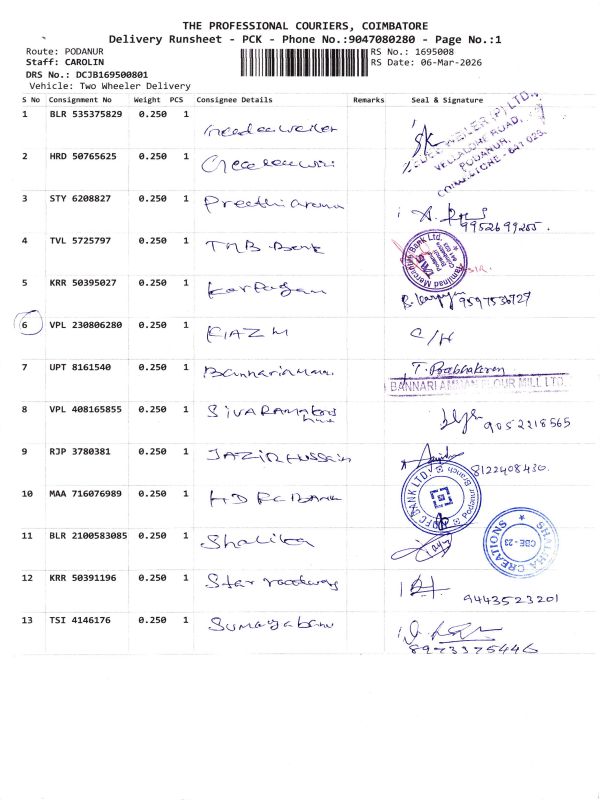 THE PROFESSIONAL COURIERS, COIMBATORE
Delivery Runsheet - PCK - Phone No.:9047080280 - Page No.:1
Route: PODANUR
RS No.: 1695008
Staff: CAROLIN
RS Date: 06-Mar-2026
DRS No.: DCJB169500801
Vehicle: Two Wheeler Delivery
S No Consignment No Weight PCS Consignee Details Remarks Seal & Signature
1 BLR 535375829 0.250 1
WEILER (P) LTD.
VELLALORE ROAD,
PODANUR,
COIMBATORE - 641 023.
2 HRD 50765625 0.250 1
3 STY 6208827 0.250 1 Preethi aruna
9952699255.
4 TVL 5725797 0.250 1 TMB Bank
Tamilnad Mercantile Bank Ltd.
5 KRR 50395027 0.250 1 Karpagan
9597536727
6 VPL 230806280 0.250 1 KIAZM C/H
7 UPT 8161540 0.250 1 Bannariamman
T. Prabhakaran
BANNARI AMMAN FLOUR MILL LTD.
8 VPL 408165855 0.250 1
9052218565
9 RJP 3780381 0.250 1 JAZIR HUSSAIN
8122408430.
10 MAA 716076989 0.250 1 HDFC BANK
HDFC BANK LTD. Podanur Branch
11 BLR 2100583085 0.250 1
CREATIONS
CBE - 23
12 KRR 50391196 0.250 1 Star roadways
9443523201
13 TSI 4146176 0.250 1 Sumayabanu
8973375446